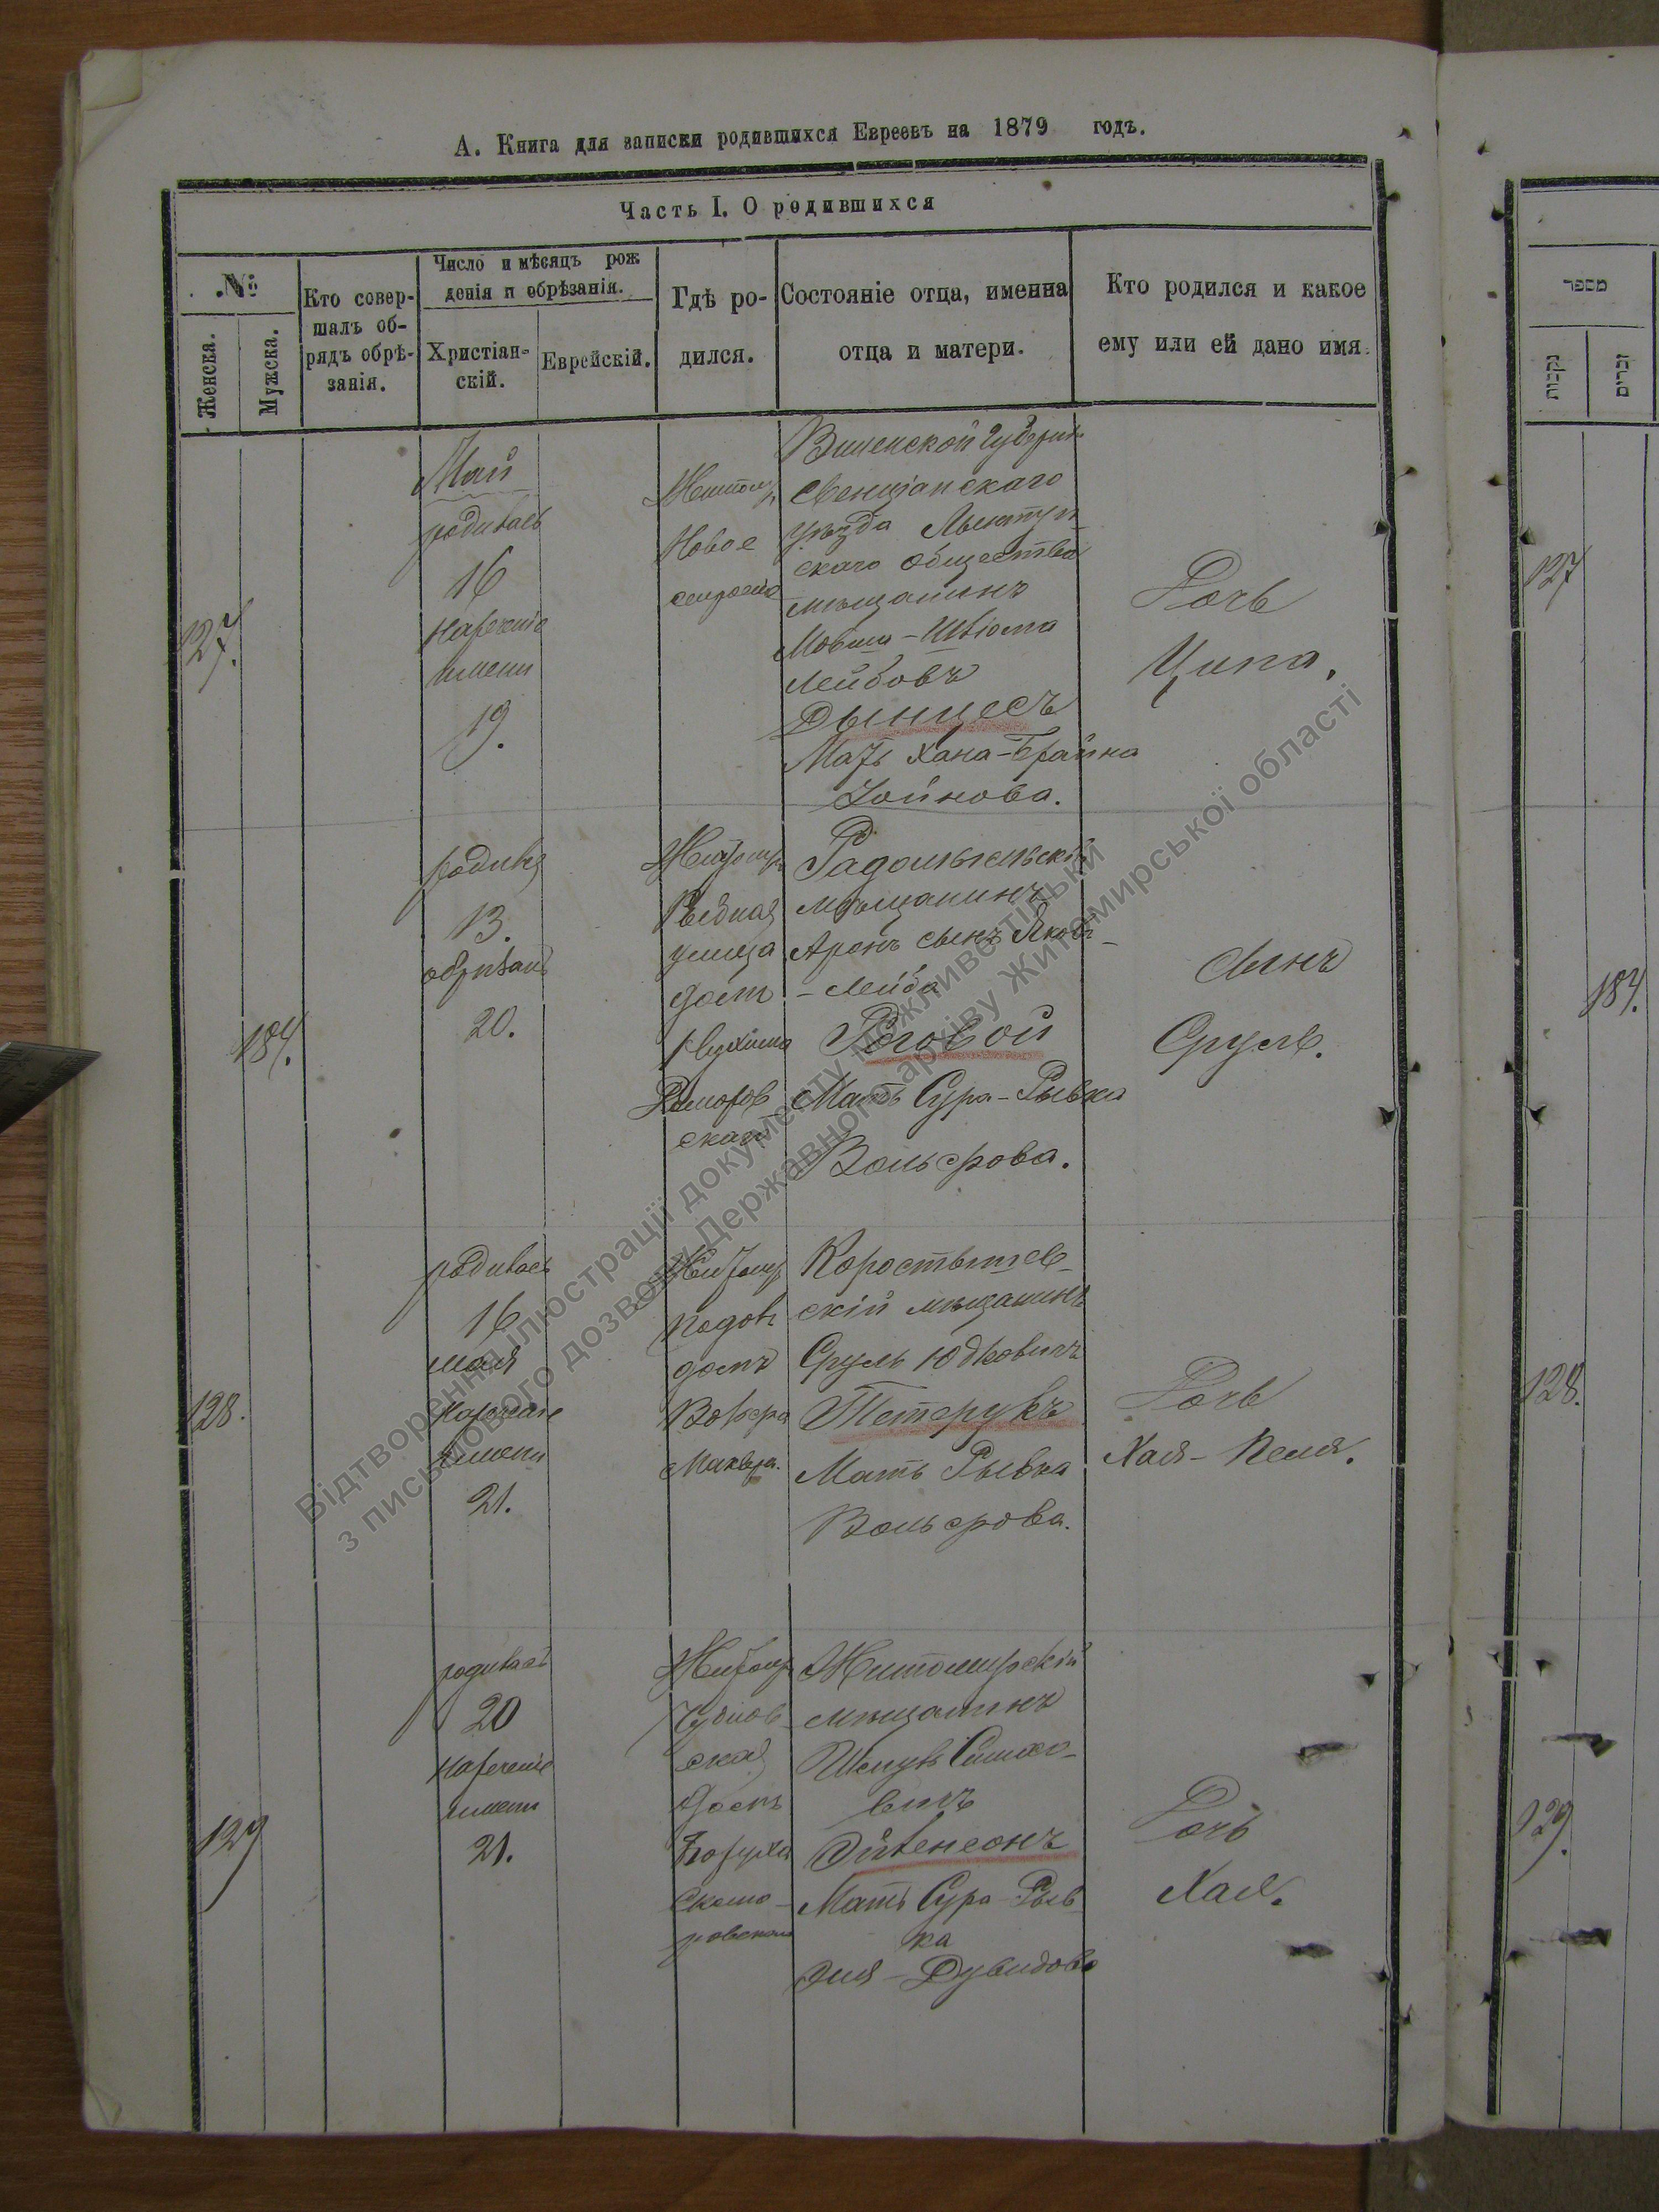 А. Книга для записки родившихся Евреевъ на 1879 годъ.
Часть I. О родившихся
№
Женска.
Мужска.
Кто совер-
шалъ об-
рядъ обрѣ-
занія.
Число и мѣсяцъ рож
денія и обрѣзанія.
Христіан-
скій.
Еврейскій.
Гдѣ ро-
дился.
Состояніе отца, имена
отца и матери.
Кто родился и какое
ему или ей дано имя.
127.
Май
родилась
16
нареченіе
имени
19.
Житом
Новое
строеніе
Виленской Губерн
Свенціанскаго
уѣзда
скаго общества
мѣщанинъ
Мовша
Лейбовъ
Дынцесъ
Мать Хана-Брайна
Дочь
Ципа.
184.
родився
13.
обрѣзанъ
20.
Житомир
улица
домъ
Радомысльскій
мѣщанинъ
Аронъ сынъ Яковъ
-Лейба
Роговой
Мать Сура-Рывка
Вольфова.
Сынъ
Сруль.
128.
родилась
16
мая
нареченіе
имени
21.
Житомир
домъ
Коростышев-
скій мѣщанинъ
Сруль Юдковичъ
Тетерукъ
Мать Рывка
Вольфова.
Дочь
Хая-Песя.
129
родилась
20
нареченіе
имени
21.
Житомир
Чуднов-
ская
домъ
Боруха
Скомо-
ровскаго
Житомирскій
мѣщанинъ
Шмуль Симхо-
вичъ
Мать Сура Рыв
ка
Дочь
Хая.
מספר
נקבות
זכרים
127
184.
128.
129.
Відтворення ілюстрації документу можливе тільки
з письмового дозволу Державного архіву Житомирської області